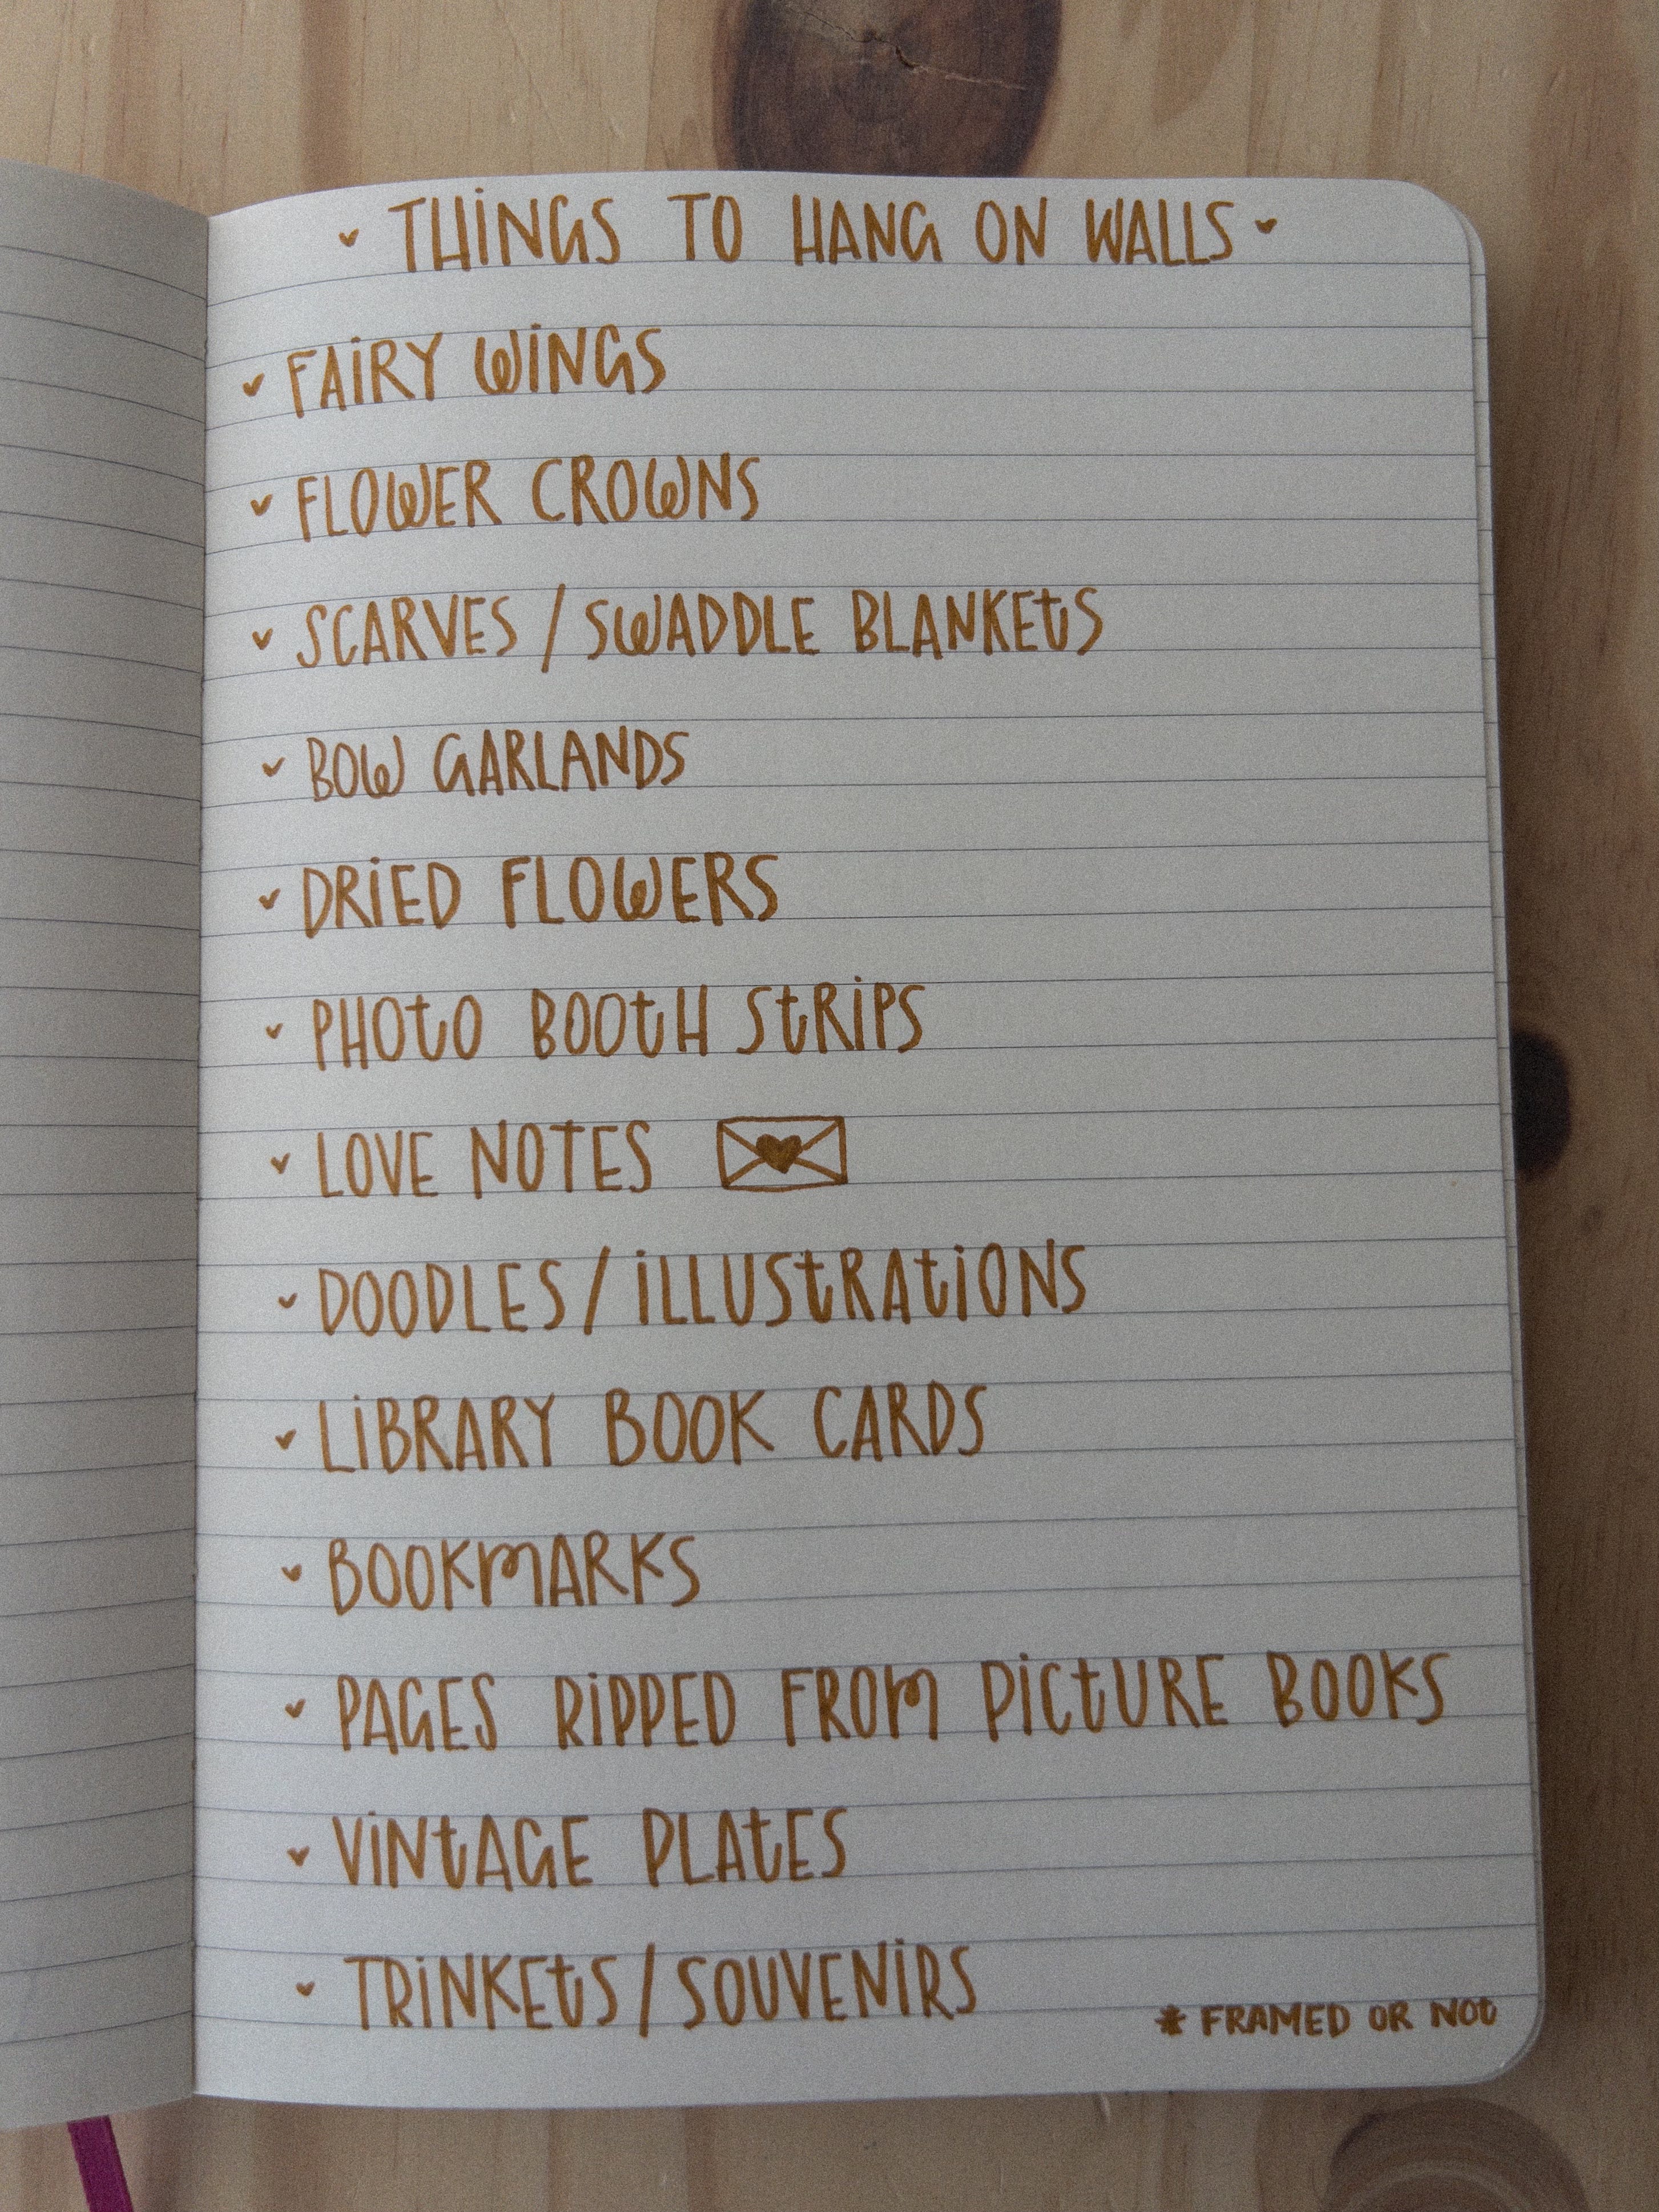 THINGS TO HANG ON WALLS
FAIRY WINGS
FLOWER CROWNS
SCARVES / SWADDLE BLANKETS
BOW GARLANDS
DRIED FLOWERS
PHOTO BOOTH STRIPS
LOVE NOTES
DOODLES / ILLUSTRATIONS
LIBRARY BOOK CARDS
BOOKMARKS
PAGES RIPPED FROM PICTURE BOOKS
VINTAGE PLATES
TRINKETS / SOUVENIRS
* FRAMED OR NOT